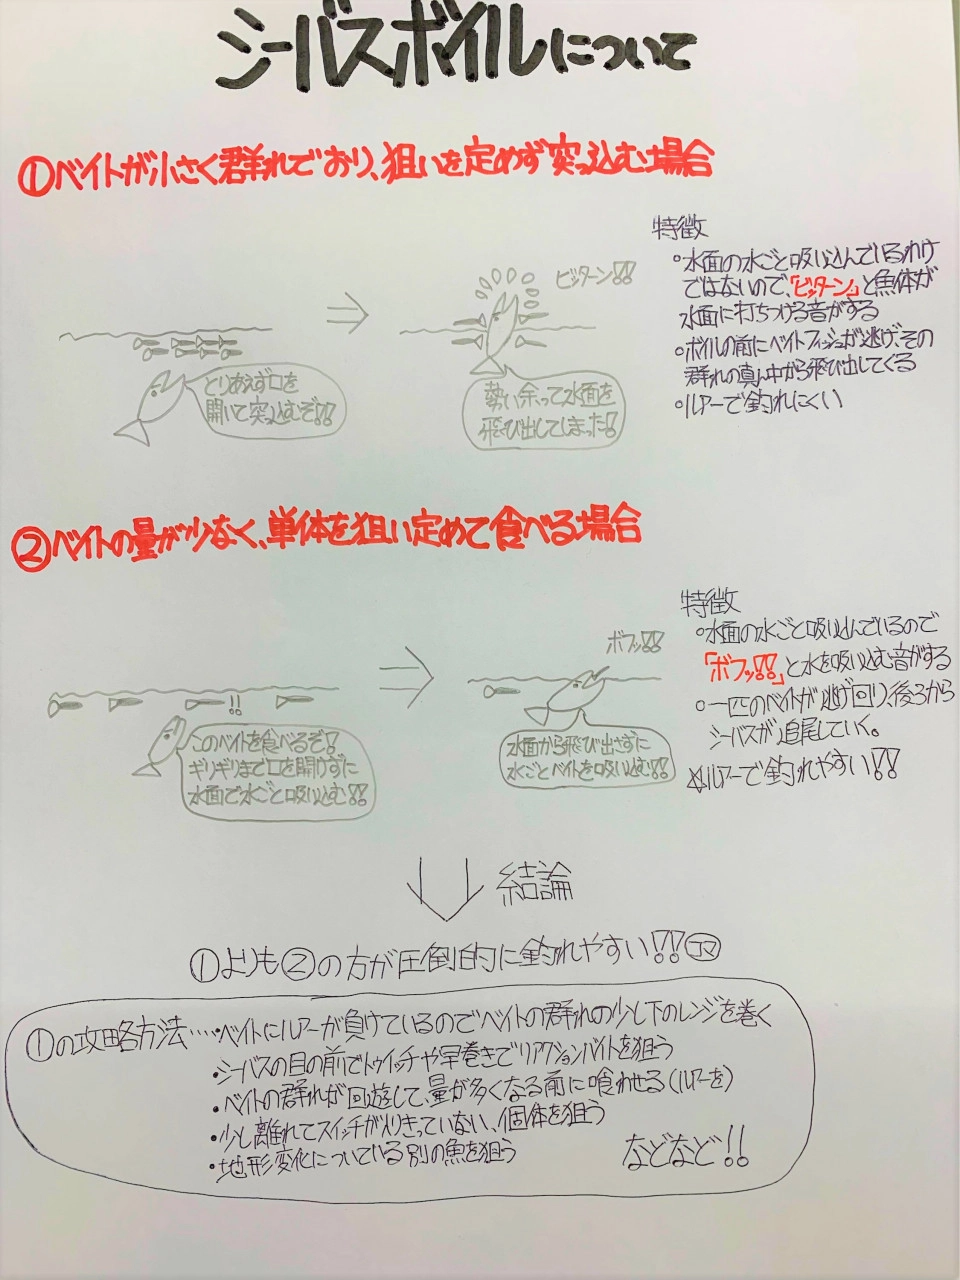 シーバスボイルについて
①ベイトが小さく群れており、狙いを定めず突っ込む場合
特徴
・水面の水ごと吸い込んでいるわけ
ではないので、「ビッターン」と魚体が
水面に打ちつける音がする
・ボイルの前にベイトフィッシュが逃げ、その
群れの真ん中から飛び出してくる
・ルアーで釣れにくい
ビッターン!!
とりあえず口を
開いて突っ込むぞ!!
勢い余って水面を
飛び出してしまった!
②ベイトの量が少なく、単体を狙い定めて食べる場合
特徴
・水面の水ごと吸い込んでいるので
「ボフッ!!」と水を吸い込む音がする
・一匹のベイトが逃げ回り、後ろから
シーバスが追尾していく。
☆ルアーで釣れやすい!!
ボフッ!!
!!
このベイトを食べるぞ!
ギリギリまで口を開けずに
水面で水ごと吸い込む!!
水面から飛び出さずに
水ごとベイトを吸い込む!!
結論
①よりも②の方が圧倒的に釣れやすい!!
①の攻略方法……・ベイトにルアーが負けているのでベイトの群れの少し下のレンジを巻く
・シーバスの目の前でトゥイッチや早巻きでリアクションバイトを狙う
・ベイトの群れが回遊して、量が多くなる前に喰わせる(ルアーを)
・少し離れてスイッチが入りきっていない、個体を狙う
・地形変化についている別の魚を狙う
などなど!!